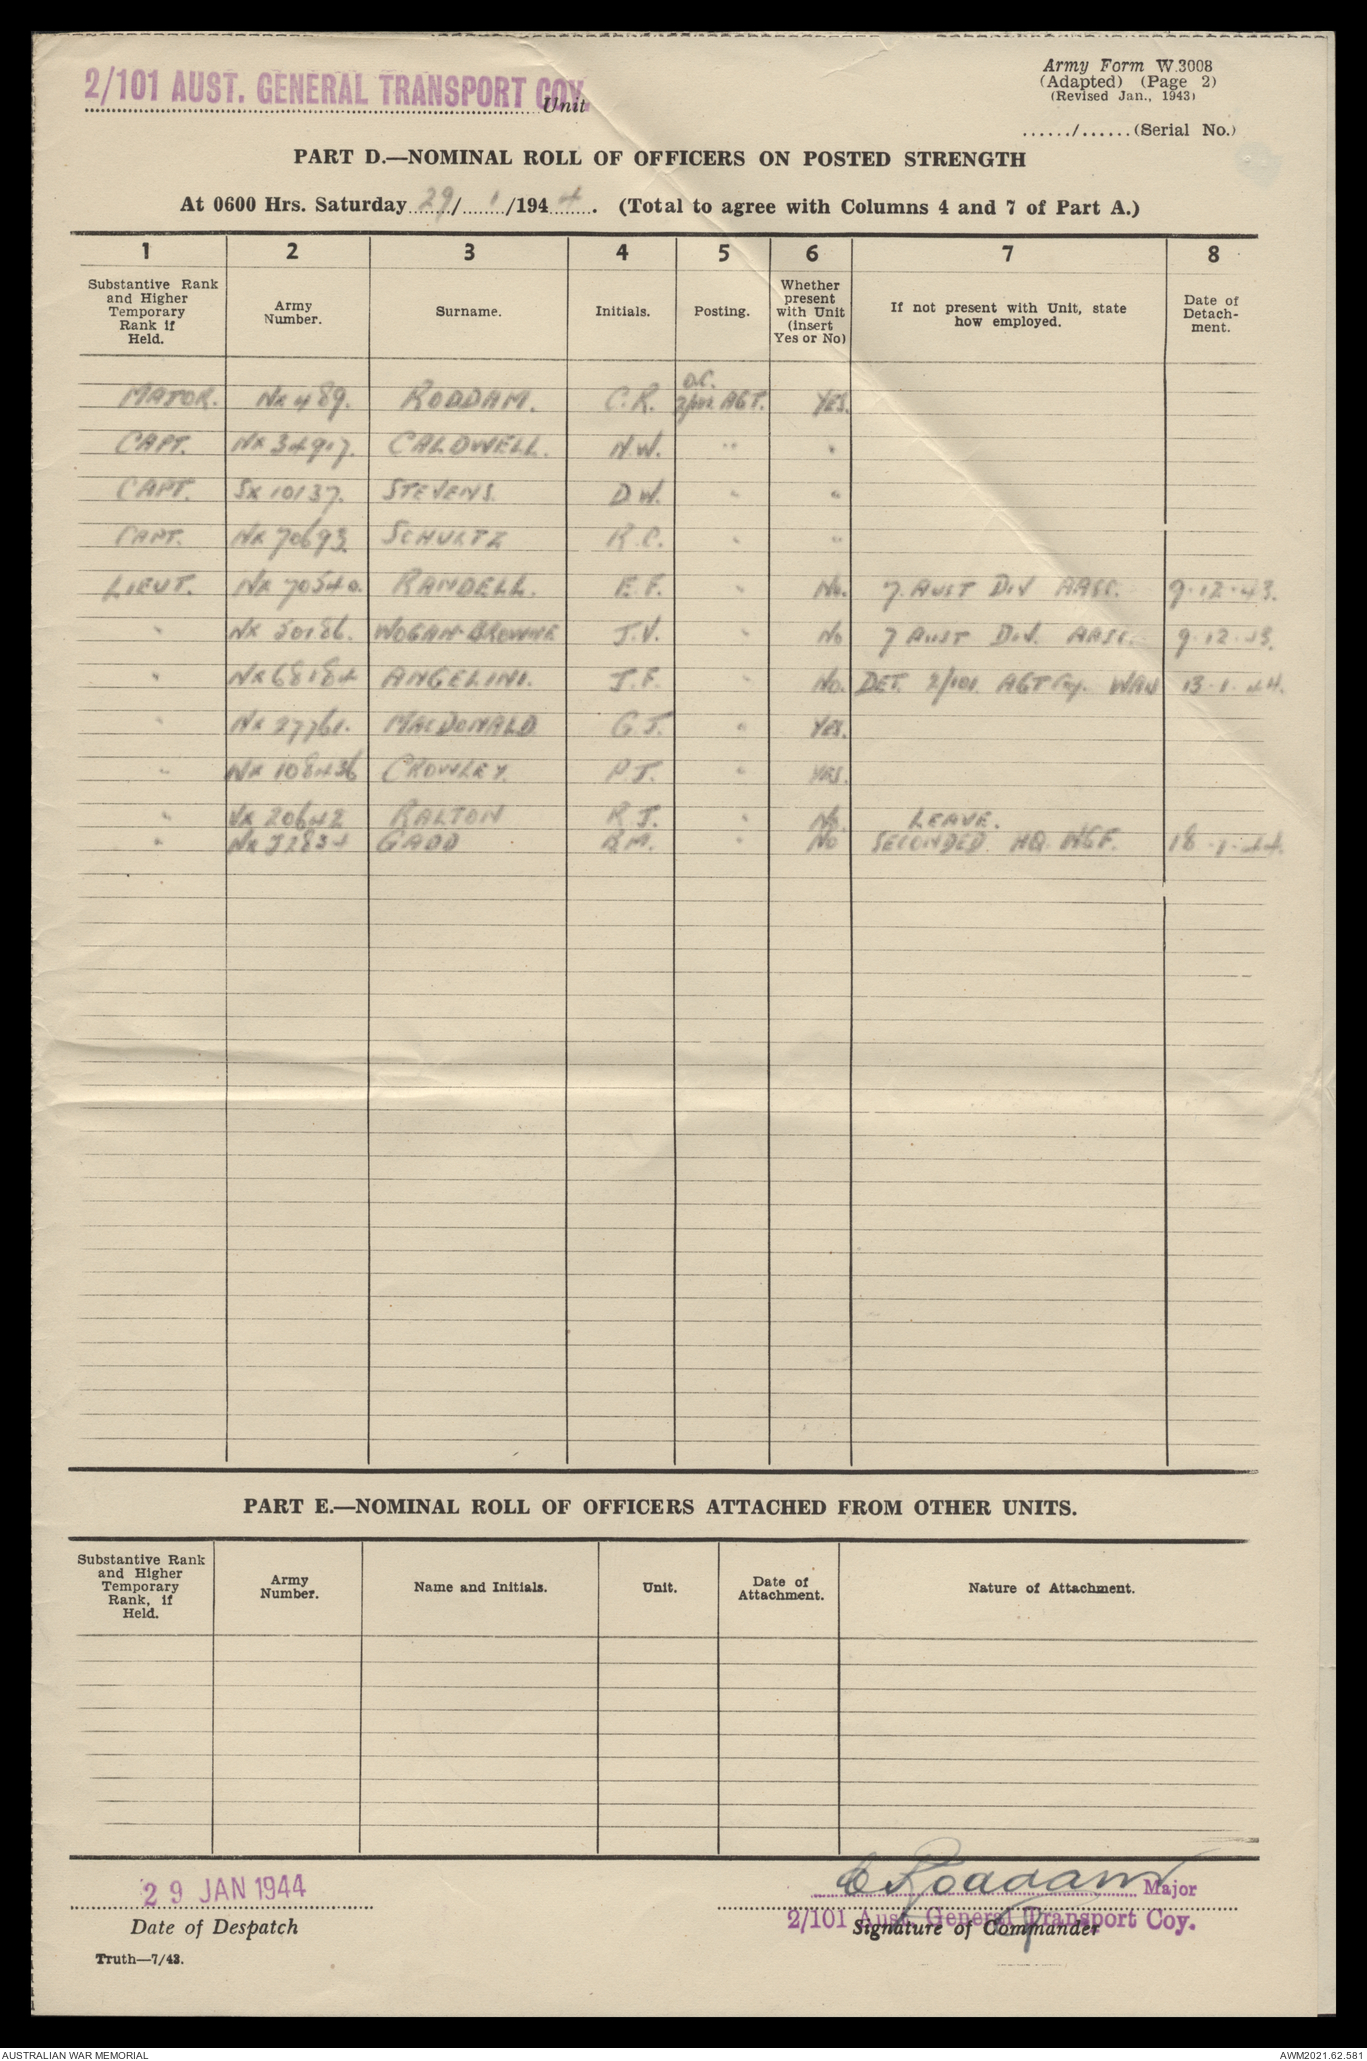 2/101 AUST. GENERAL TRANSPORT COY.
Unit
Army Form W.3008
(Adapted) (Page 2)
(Revised Jan., 1943)
....../......(Serial No.)
PART D.—NOMINAL ROLL OF OFFICERS ON POSTED STRENGTH
At 0600 Hrs. Saturday 29/ 1 /194 4. (Total to agree with Columns 4 and 7 of Part A.)
1 2 3 4 5 6 7 8
Substantive Rank and Higher Temporary Rank if Held. Army Number. Surname. Initials. Posting. Whether present with Unit (insert Yes or No) If not present with Unit, state how employed. Date of Detachment.
MAJOR. NX 489. RODDAM. C.R. O.C. 2/101 AGT. YES.
CAPT. NX 34917. CALDWELL. N.W. " "
CAPT. SX 10137. STEVENS. D.W. " "
CAPT. NX 70693. SCHULTZ R.C. " "
LIEUT. NX 70540. RANDELL. E.F. " No. 7. AUST DIV AASC. 9.12.43.
" NX 50186. WOGAN-BROWNE J.V. " No 7 AUST DIV. AASC. 9.12.43.
" NX 68184 ANGELINI. J.F. " No. DET. 2/101 AGT Coy. WAU 13.1.44.
" NX 27761. MACDONALD G.J. " YES.
" NX 108436 CROWLEY. P.J. " YES.
" VX 20642 RALTON R.J. " No. LEAVE.
" NX 12834 GADD B.M. " No SECONDED HQ. NGF. 18.1.44.
PART E.—NOMINAL ROLL OF OFFICERS ATTACHED FROM OTHER UNITS.
Substantive Rank and Higher Temporary Rank, if Held. Army Number. Name and Initials. Unit. Date of Attachment. Nature of Attachment.
29 JAN 1944
Date of Despatch
Truth—7/43.
C Roddam Major
2/101 Aust. General Transport Coy.
Signature of Commander
AUSTRALIAN WAR MEMORIAL
AWM2021.62.581